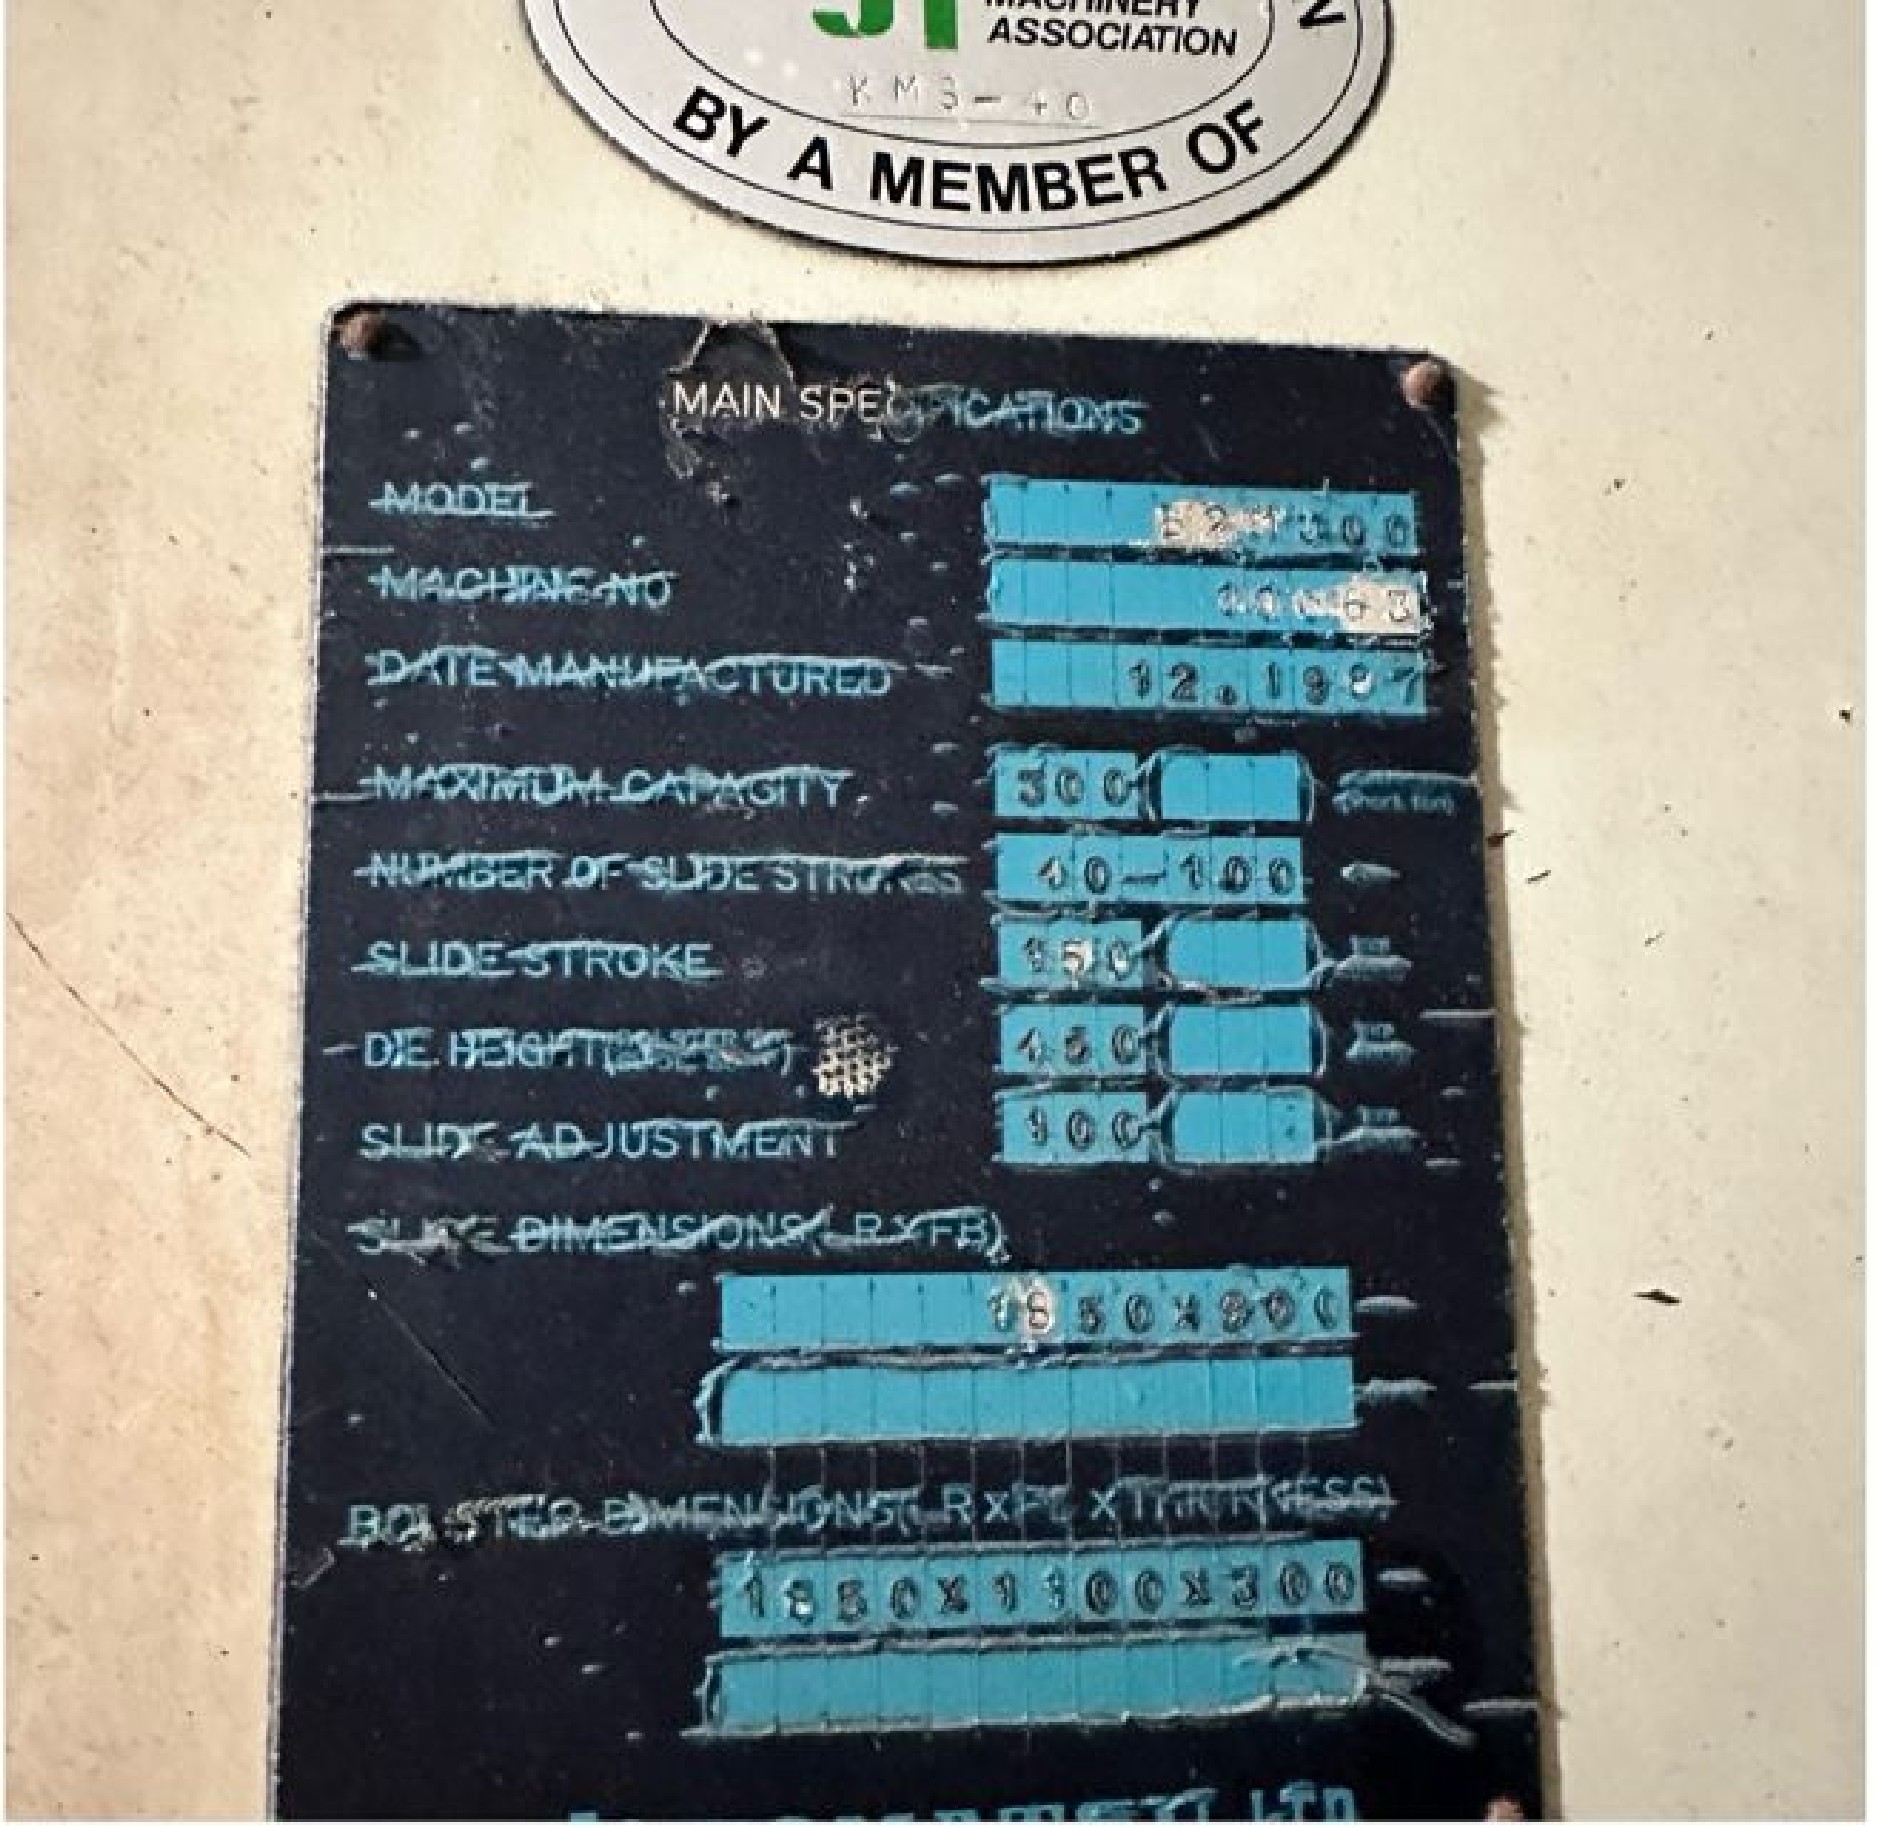 MACHINERY
ASSOCIATION
KM3-40
BY A MEMBER OF
MAIN SPECIFICATIONS
MODEL
MACHINE NO
DATE MANUFACTURED 12.1997
MAXIMUM CAPACITY 300 (short ton)
NUMBER OF SLIDE STROKES 40-100
SLIDE STROKE 150
DIE HEIGHT 450
SLIDE ADJUSTMENT 100
SLIDE DIMENSIONS(LRXFB)
1850X900
BOLSTER DIMENSIONS(LRXFB XTHICKNESS)
1850X1100X300
LTD